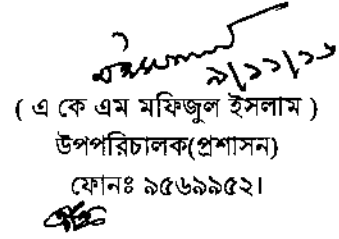 ৯/১১/১১
( এ কে এম মফিজুল ইসলাম )
উপপরিচালক(প্রশাসন)
ফোনঃ ৯৫৬৯৯৫২।